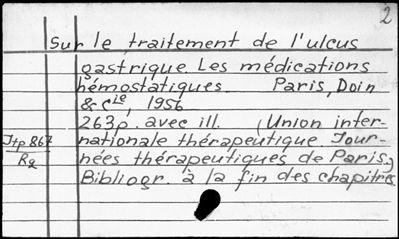 2
Sur le traitement de l'ulcus
gastrique. Les médications
hémostatiques. Paris, Doin
& Cie, 1956
263p. avec ill. (Union inter-
Itp 867 nationale thérapeutique. Jour-
Rg nées thérapeutiques de Paris)
Bibliogr. à la fin des chapitres